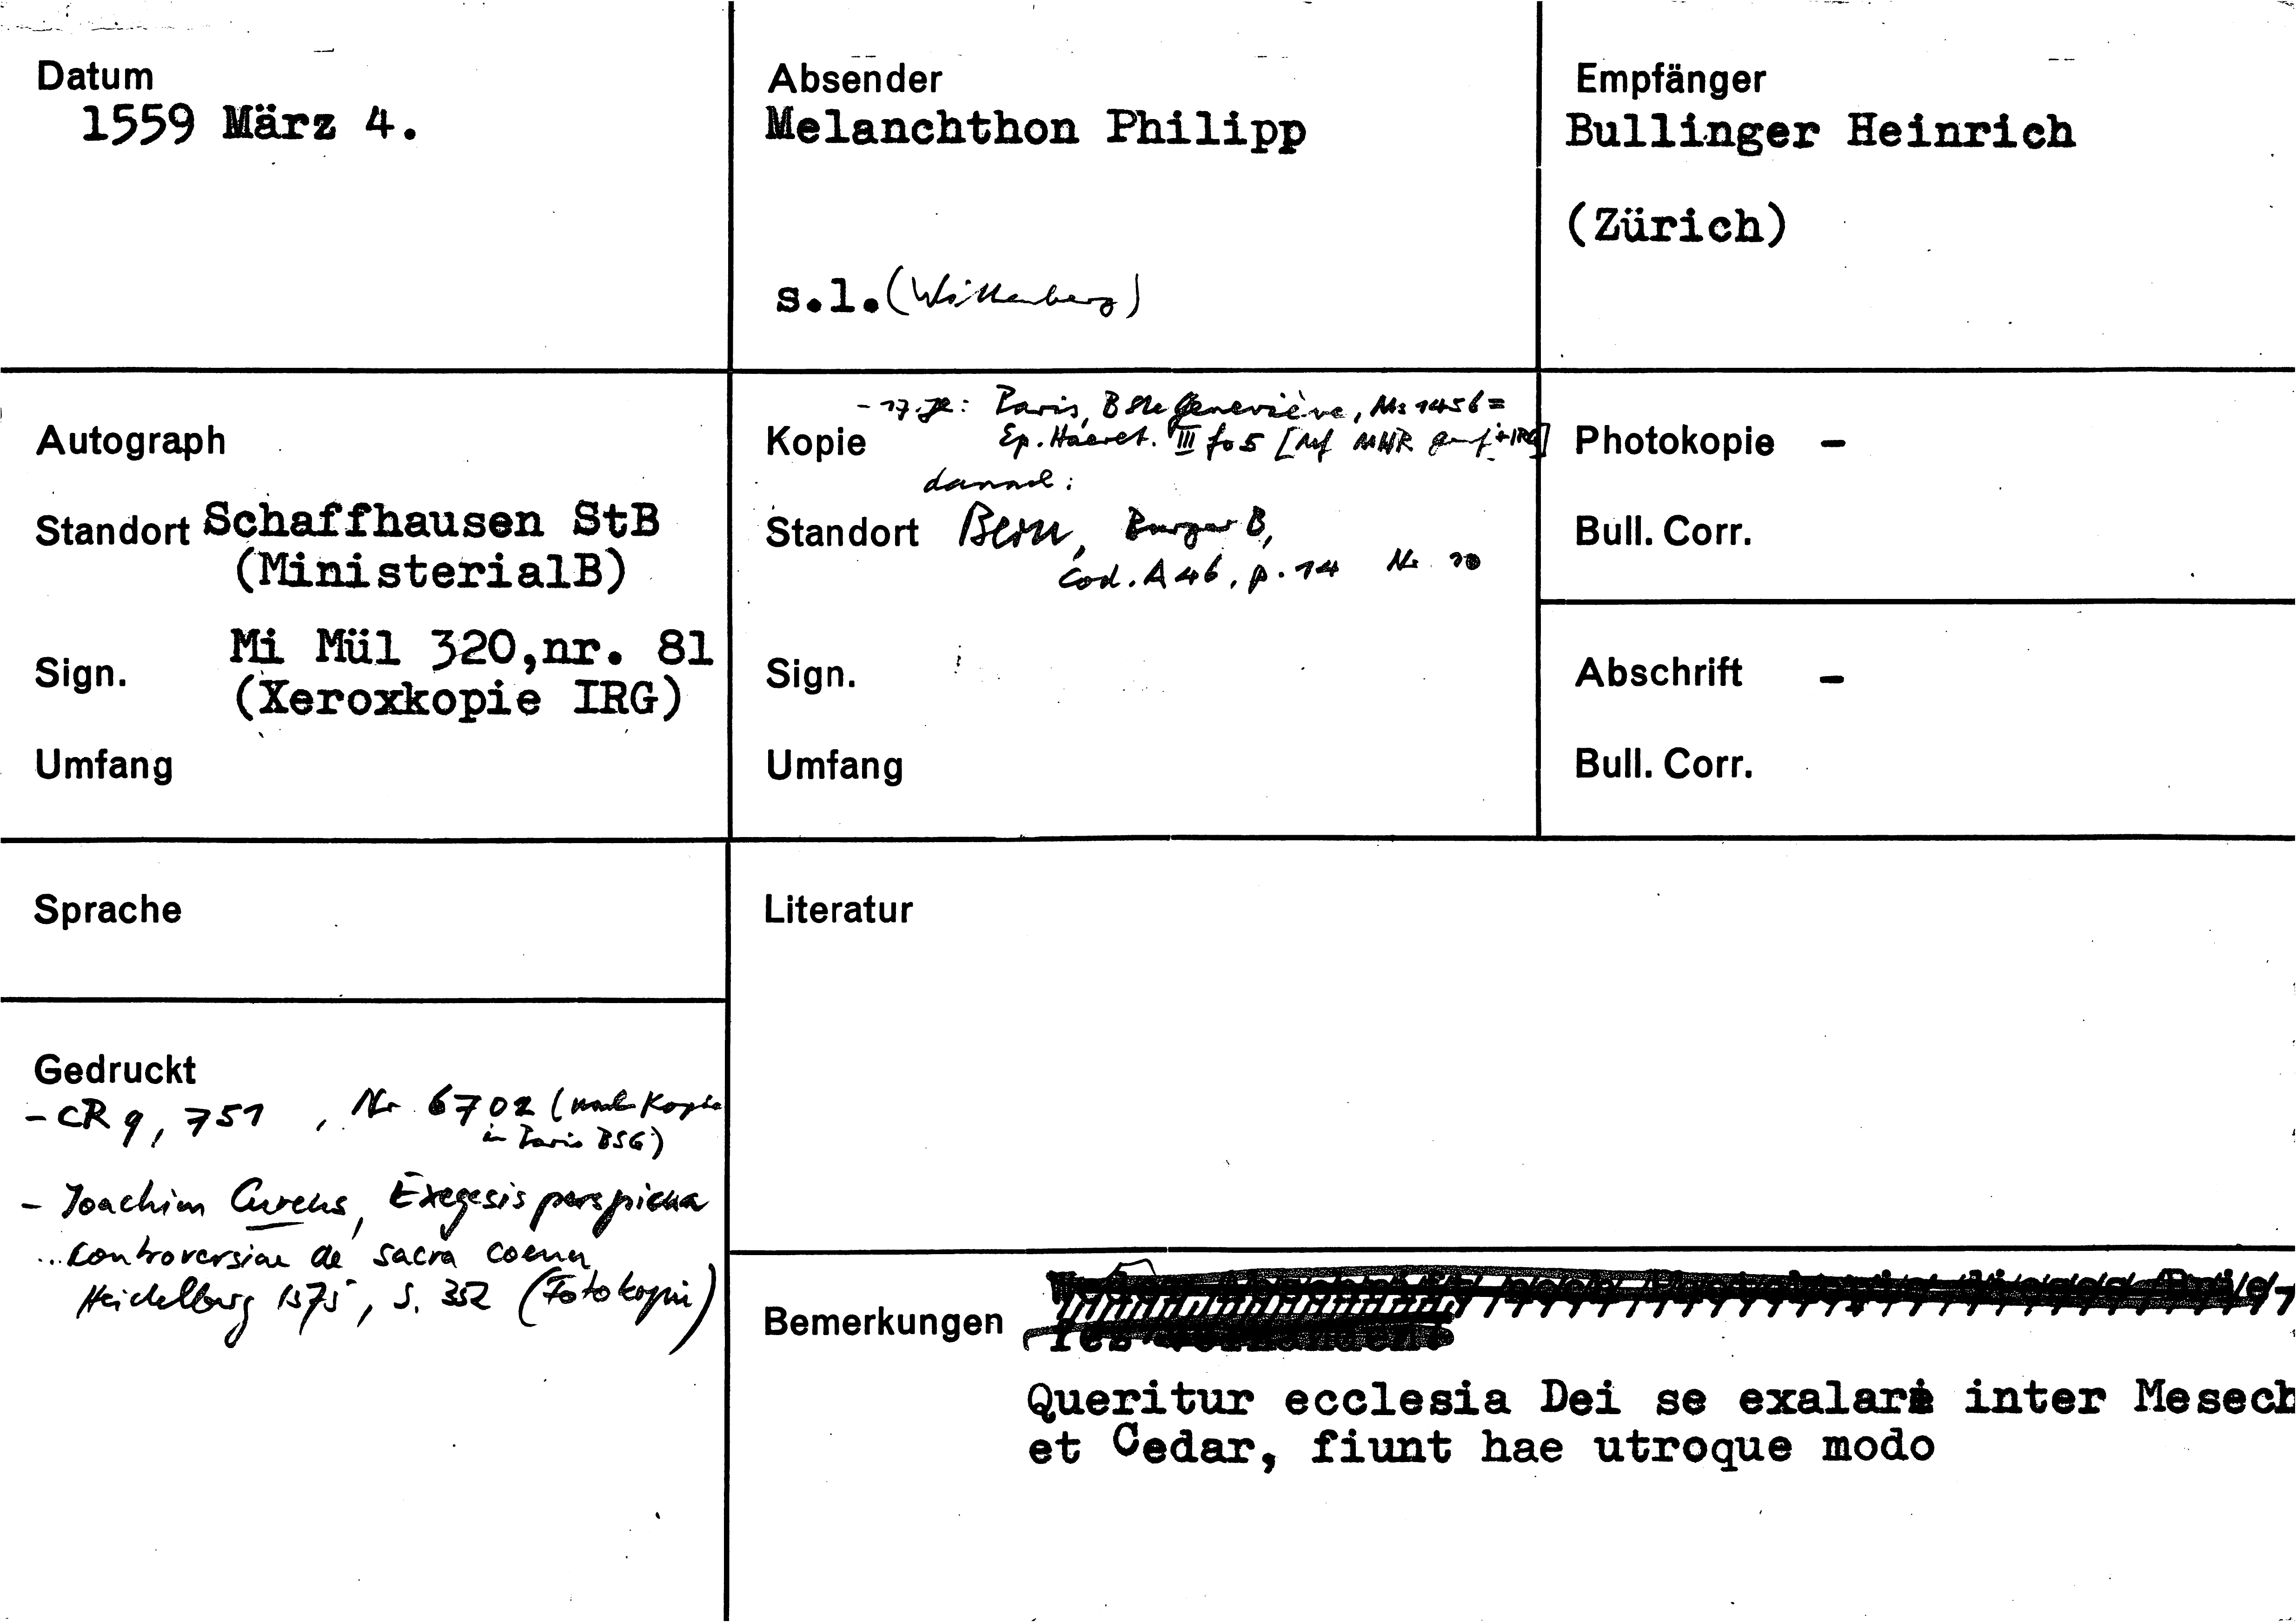 Datum
1559 März 4.
Absender
Melanchthon Philipp
s.l. (Wittenberg)
Empfänger
Bullinger Heinrich
(Zürich)
Autograph
Standort Schaffhausen StB
(MinisterialB)
Sign. Mi Mül 320,nr. 81
(Xeroxkopie IRG)
Umfang
- 17. Jh: Paris, B Ste Geneviève, Ms 1456 =
Kopie Ep. Haeret. III fo 5 [Mf MHR Genf + IRG]
danach:
Standort Bern, Burger B,
Cod. A 46, p. 14 Nr 10
Sign.
Umfang
Photokopie -
Bull. Corr.
Abschrift -
Bull. Corr.
Sprache
Literatur
Gedruckt
- CR 9, 751, Nr 6702 (nach Kopie
in Paris BSG)
- Joachim Cureus, Exegesis perspicua
... controversiae de sacra coena
Heidelberg 1575, S. 352 (Fotokopie)
Bemerkungen
Queritur ecclesia Dei se exalare inter Mesech
et Cedar, fiunt hae utroque modo